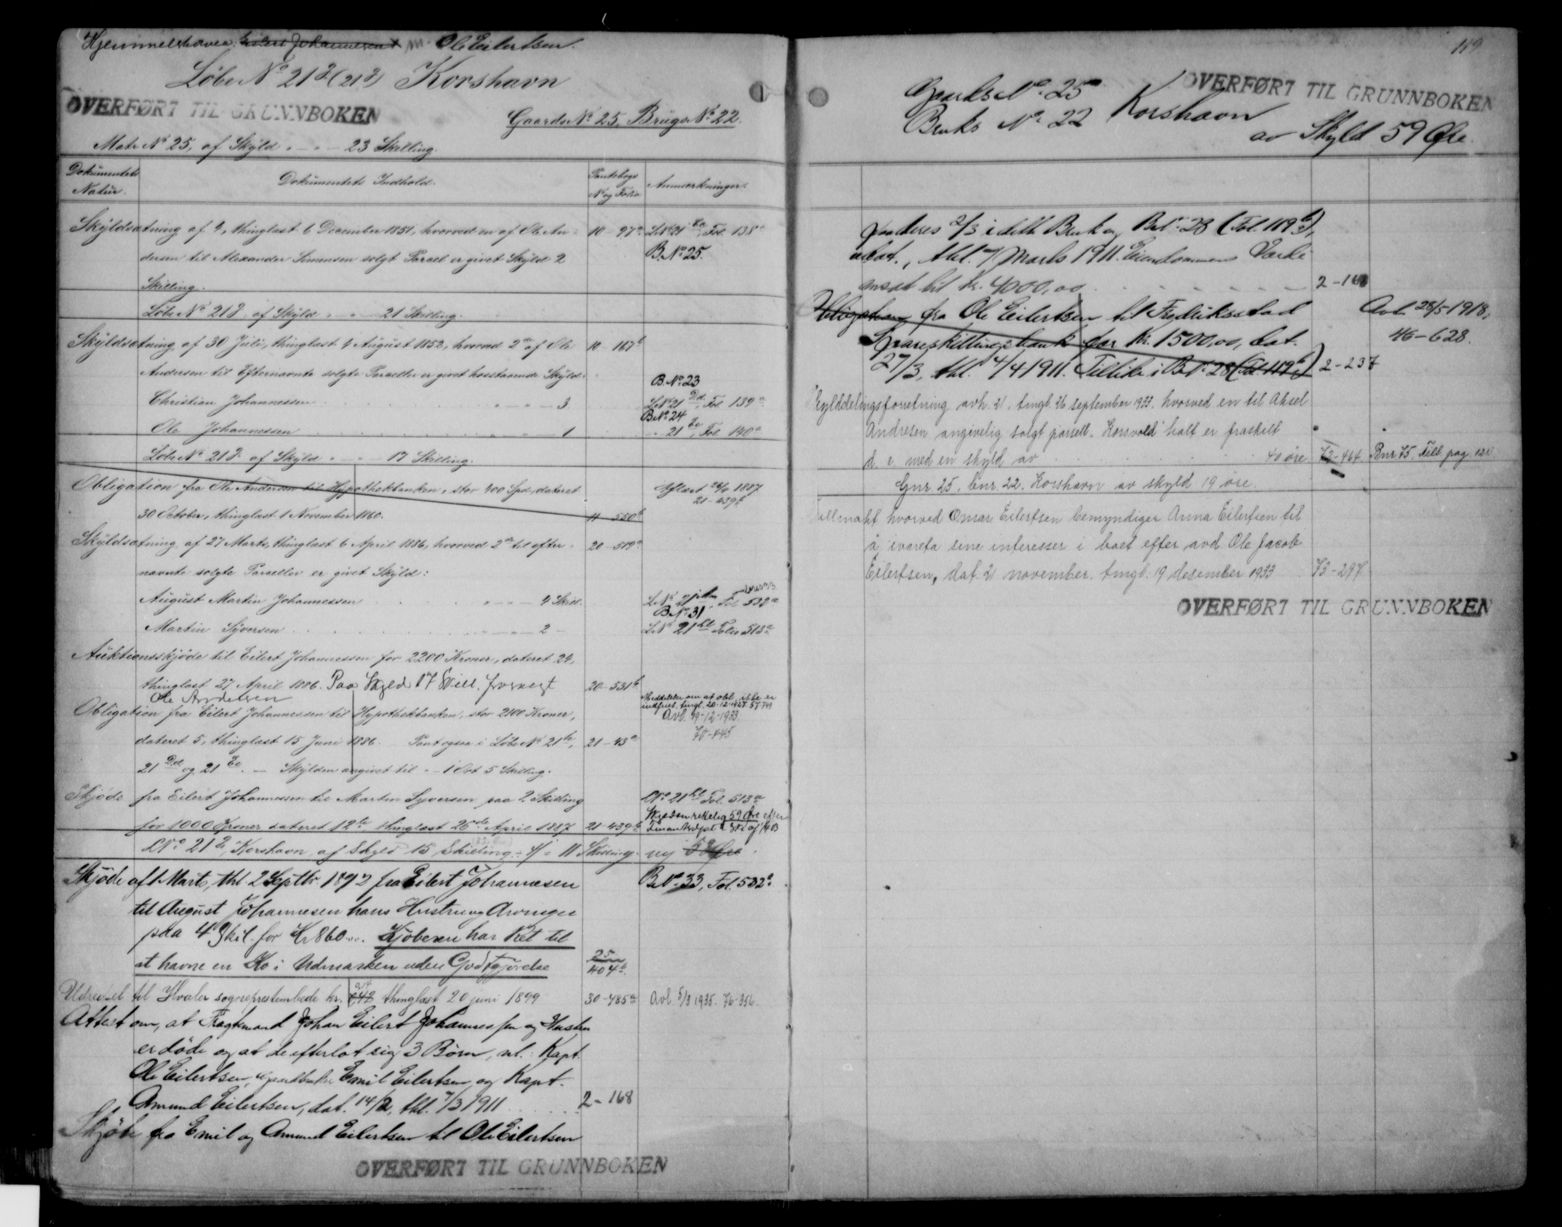 Hjemmelshaver: Eilert Johannesen Ole Eilertsen.
Løbe No 21 d (21 d) Korshavn
OVERFØRT TIL GRUNNBOKEN
Gaards No 25, Brugs No 22.
Matr No 25, af Skyld . - . - 23 Skilling.
Dokumentets Natur.
Dokumentets Indhold.
Pantebogs No og Folio
Anmærkninger.
Skyldsætning af 4, thinglæst 6 December 1851, hvorved en af Ole An- 10-97 a L.No 21 Fol. 138 a
dersen til Alexander Simensen solgt Parcel er givet Skyld 2 B.No 25.
Skilling.
Løbe No 21 d. af Skyld . - . - 21 Skilling.
Skyldsætning af 30 Juli, thinglæst 4 August 1852, hvorved 2de af Ole 10-167 b
Andersen til Efternævnte solgte Parceller er givet hosstaaende Skyld: B.No 23
Christian Johannessen - 3 L.No 21 Dd. Fol. 139 a
B.No 24
Ole Johannessen - 1 - 21 Fol. 140 a
Løbe No 21 d. af Skyld - . - 17 Skilling.
Obligation fra Ole Andersen til Hypothekbanken, stor 400 Spd, dateret Aflæst 1887
21-439 b
30 October, thinglæst 1 November 1860. 11-550 b
Skyldsætning af 27 Marts, thinglæst 6 April 1886, hvorved 2de til efter- 20-519 a
nævnte solgte Parceller er givet Skyld:
August Martin Johannessen - 4 Skill. L.No 21 Fol 532 a
B.No 31
Martin Syversen - 2 - L.No 21 Folio 513 a
Auktionsskjøde til Eilert Johannessen for 2200 Kroner, dateret 24,
thinglæst 27 April 1886. Paa Skyld 17 Skill. forøvrigt 20-531 b
Ole Andersen
Obligation fra Eilert Johannessen til Hypothekbanken, stor 2400 Kroner,
Avl. 19-12-1933.
70-445
dateret 5, thinglæst 15 Juni 1886. Pant ogsaa i Løbe No 21 21-43 a
21 Dd og 21 - Skylden angivet til - 1 Ort 5 Skilling.
Skjøde fra Eilert Johannessen til Martin Syversen paa 2 Skilling L No 21 Fol. 513 a
for 1000 Kroner dateret 12te thinglæst 26de April 1887 21-439 b
L No 21 d, Korshavn, af Skyld 15 Skilling - 4 = 11 Skilling. ny
Skjøde af 1 Marts, thl. 2 Septbr 1892 fra Eilert Johannesen B.No. 33, Fol. 532 a.
til August Johannesen hans Hustru og Arvinger
paa 4 Skil. for Kr 860. Kjøberen har Ret til
at havne en Ko i Udmarken uden Godtgjørelse 25/404 a.
Udskrevet til Hvaler sogneprestembede kr. thinglæst 20 juni 1899 30-785 a Avl. 5/3 1935. 76-356.
Attest om, at Fragtmand Johan Eilert Johannessen og Hustru
er døde og at de efterlot sig 3 Børn, nl. Kapt.
Ole Eilertsen, Gaardbruker Emil Eilertsen og Kapt.
Amund Eilertsen, dat. 14/2, thl. 7/3 1911 2-168
Skjøte fra Emil og Amund Eilertsen til Ole Eilertsen
OVERFØRT TIL GRUNNBOKEN
119
Gaards No. 25
Bruks No. 22 Korshavn
OVERFØRT TIL GRUNNBOKEN
av Skyld 59 Øre.
paa deres 2/3 i dette Bruk og B.No. 28 (Fol 117 b),
udat., thl. 7 Marts 1911. Eiendommens Værdi
ansat til kr. 4000,00 2-168
Obligation fra Ole Eilertsen til Fredriksstad Avl. 28/5 1918,
Spareskillingsbank for kr. 1500,00, dat. 46-628.
27/3, thl. 4/4 1911. Tillike i B.No. 28 (Fol 117 b) 2-237
Skylddelingsforretning avh. 21. tingl. 26 september 1933. hvorved en til Aksel
Andresen angivelig solgt parsell. Korsvold kalt er fraskilt
d. e. med en skyld av 40 øre 72-464 Bnr 75. Fell. pag.
Gnr. 25. bnr. 22. Korshavn av skyld 19 øre.
Fullmakt hvorved Omar Eilertsen bemyndiger Anna Eilertsen til
å ivareta sine interesser i boet efter avd. Ole Jacob
Eilertsen, dat. 21 november. tingl. 19 desember 1933 73-297
OVERFØRT TIL GRUNNBOKEN